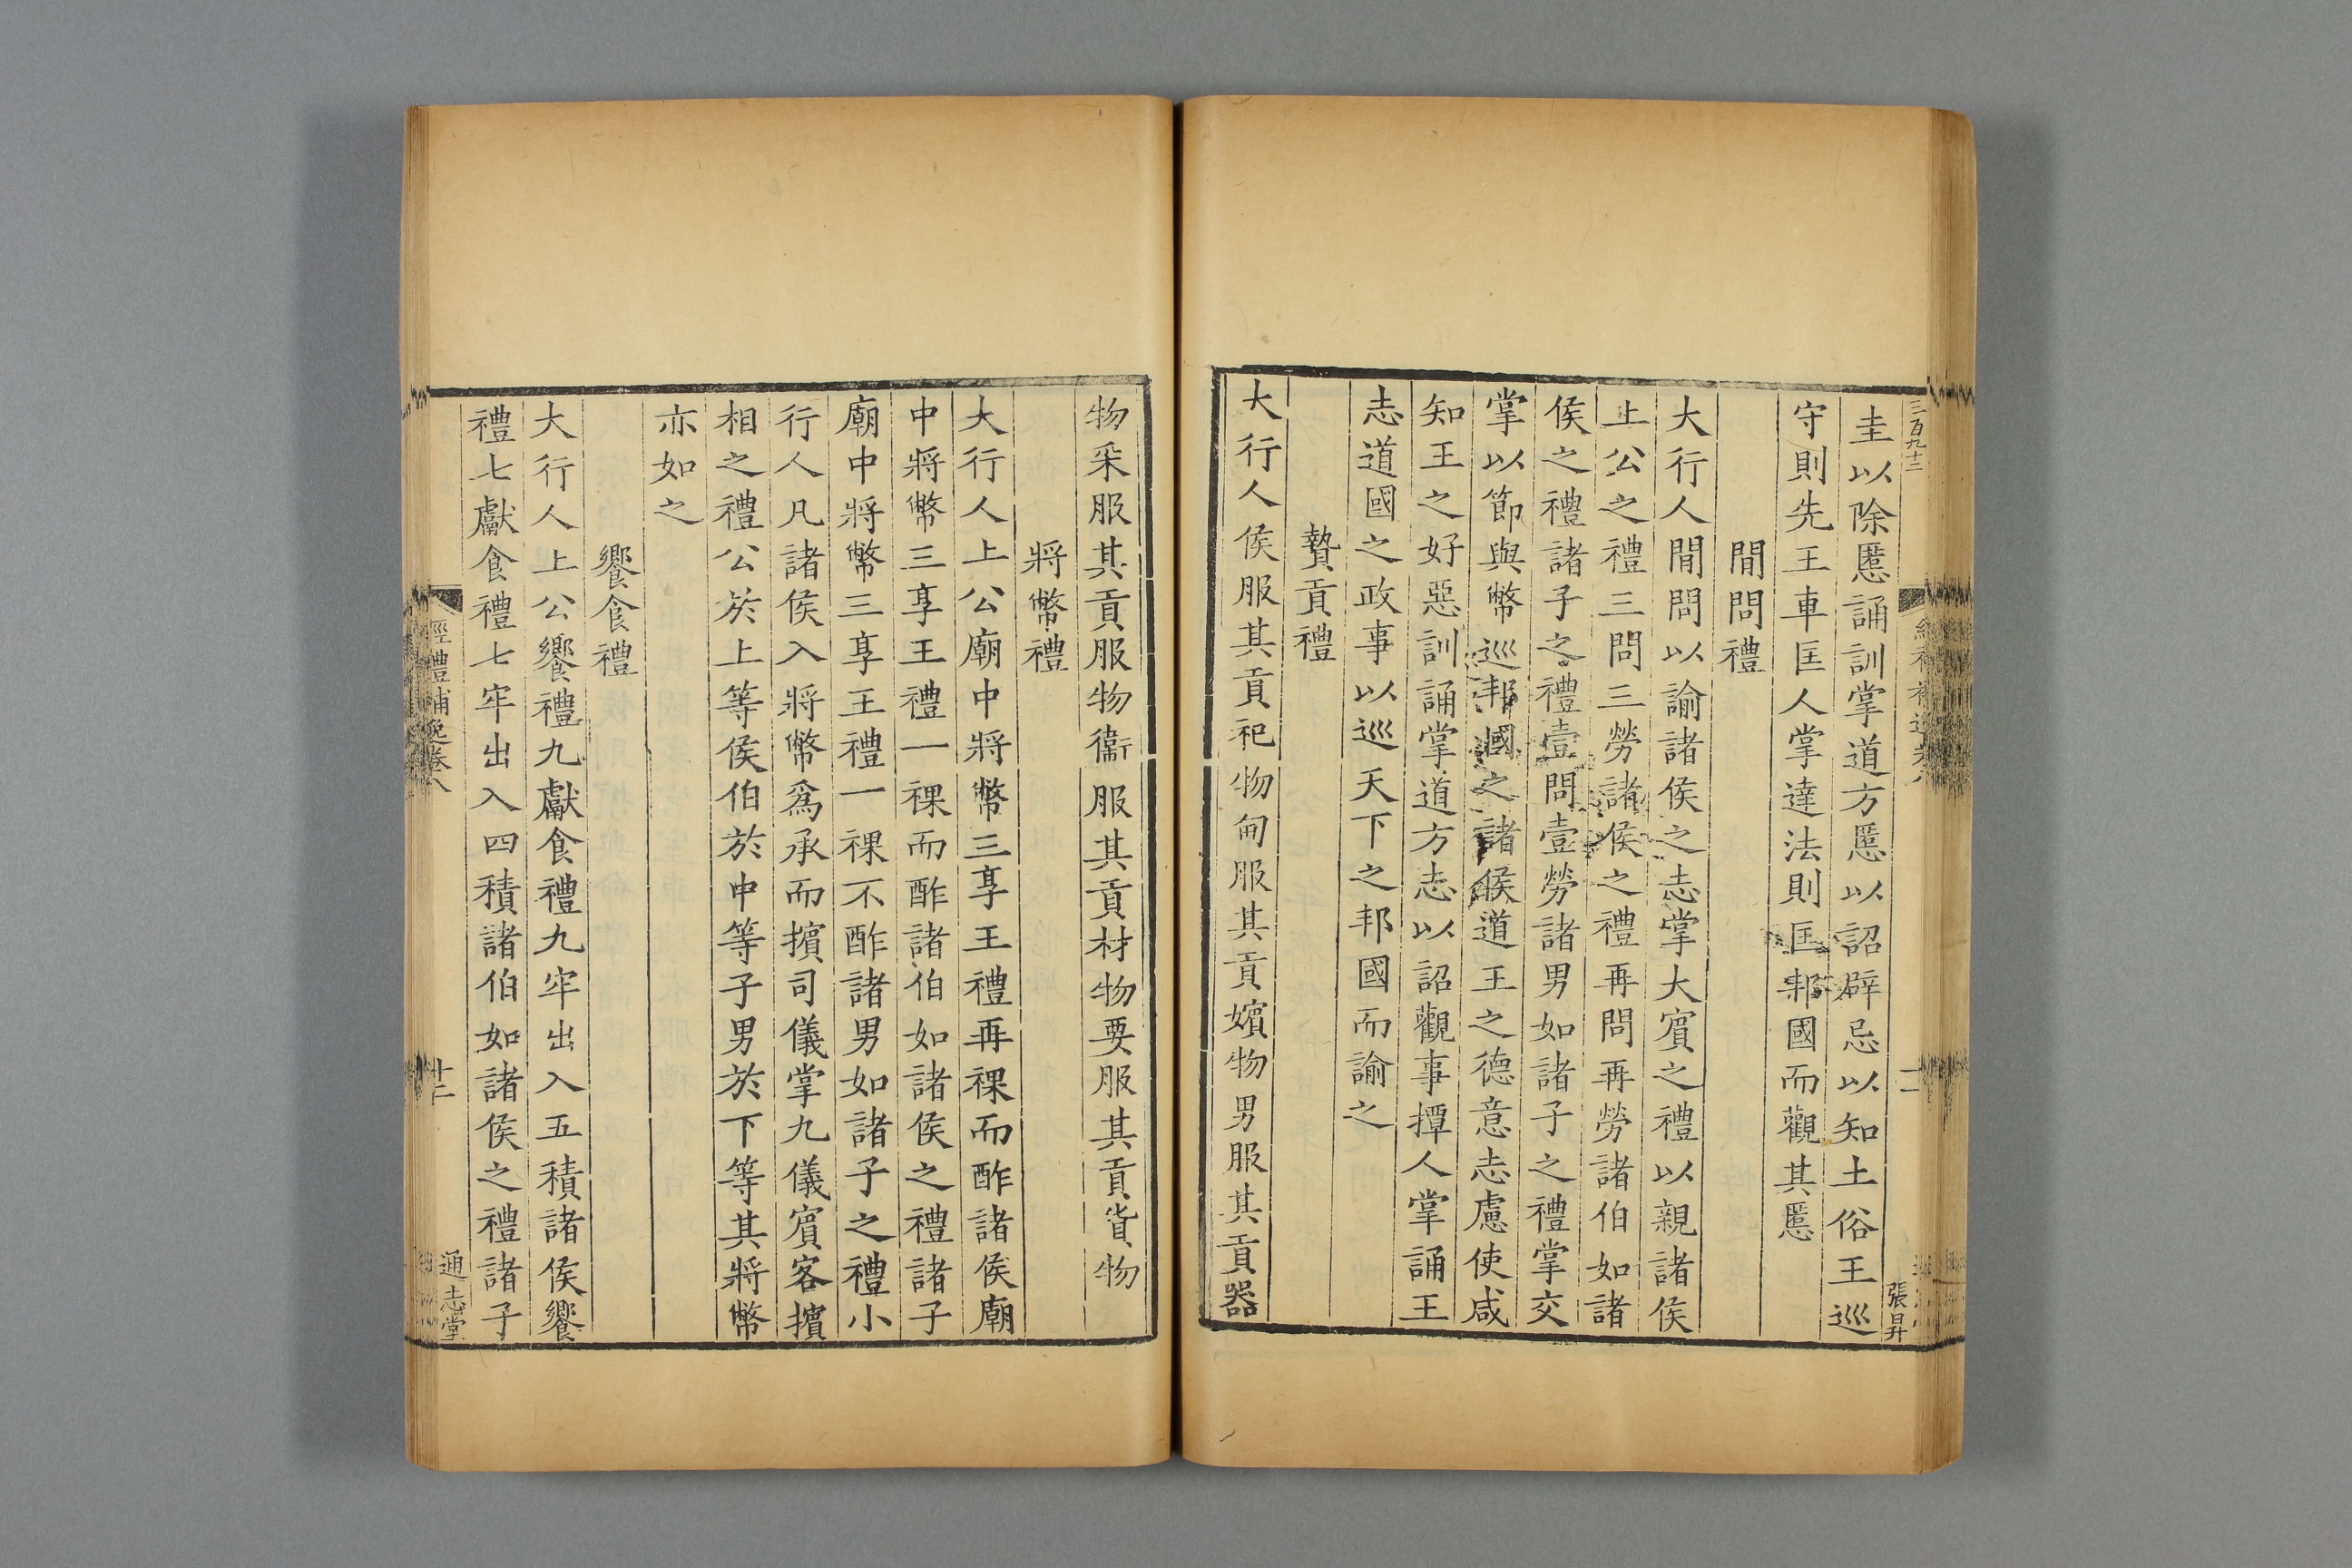 三百九十二
張昇
圭以除慝誦訓掌道方慝以詔辟忌以知土俗王巡
守則先王車匡人掌達法則匡邦國而觀其慝
間問禮
大行人間問以諭諸侯之志掌大賓之禮以親諸侯
上公之禮三問三勞諸侯之禮再問再勞諸伯如諸
侯之禮諸子之禮壹問壹勞諸男如諸子之禮掌交
掌以節與幣巡邦國之諸侯道王之德意志慮使咸
知王之好惡訓誦掌道方志以詔觀事撢人掌誦王
志道國之政事以巡天下之邦國而諭之
贄貢禮
大行人侯服其貢祀物甸服其貢嬪物男服其貢器
物采服其貢服物衞服其貢材物要服其貢貨物
將幣禮
大行人上公廟中將幣三享王禮再祼而酢諸侯廟
中將幣三享王禮一祼而酢諸伯如諸侯之禮諸子
廟中將幣三享王禮一祼不酢諸男如諸子之禮小
行人凡諸侯入將幣爲承而擯司儀掌九儀賓客擯
相之禮公於上等侯伯於中等子男於下等其將幣
亦如之
饗食禮
大行人上公饗禮九獻食禮九牢出入五積諸侯饗
禮七獻食禮七牢出入四積諸伯如諸侯之禮諸子
經禮補逸卷八
十二
通志堂